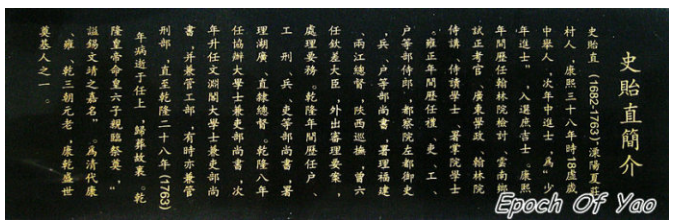 史貽直簡介
史貽直(1682-1763)，溧陽夏莊
村人，康熙三十八年時18虛歲
中舉人，次年中進士，爲“少
年進士”，入選庶吉士。康熙
年間歷任翰林院檢討、雲南鄉
試正考官、廣東學政、翰林院
侍講、侍讀學士、署掌院學士
。雍正年間歷任禮、吏、工、
户等部侍郎，都察院左都御史
，兵、户等部尚書，署理福建
、兩江總督，陝西巡撫，曾六
任欽差大臣，外出審理要案，
處理要務。乾隆年間歷任户、
工、刑、兵、吏等部尚書，署
理湖廣、直隸總督。乾隆八年
任協辦大學士兼吏部尚書，次
年升任文淵閣大學士兼吏部尚
書，并兼管工部，有時亦兼管
刑部，直至乾隆二十八年(1763)
年病逝于任上，歸葬故裏。乾
隆皇帝命皇六子親臨祭奠，
謚錫文靖之嘉名”。爲清代康
、雍、乾三朝元老，康乾盛世
奠基人之一。
Epoch Of Yao